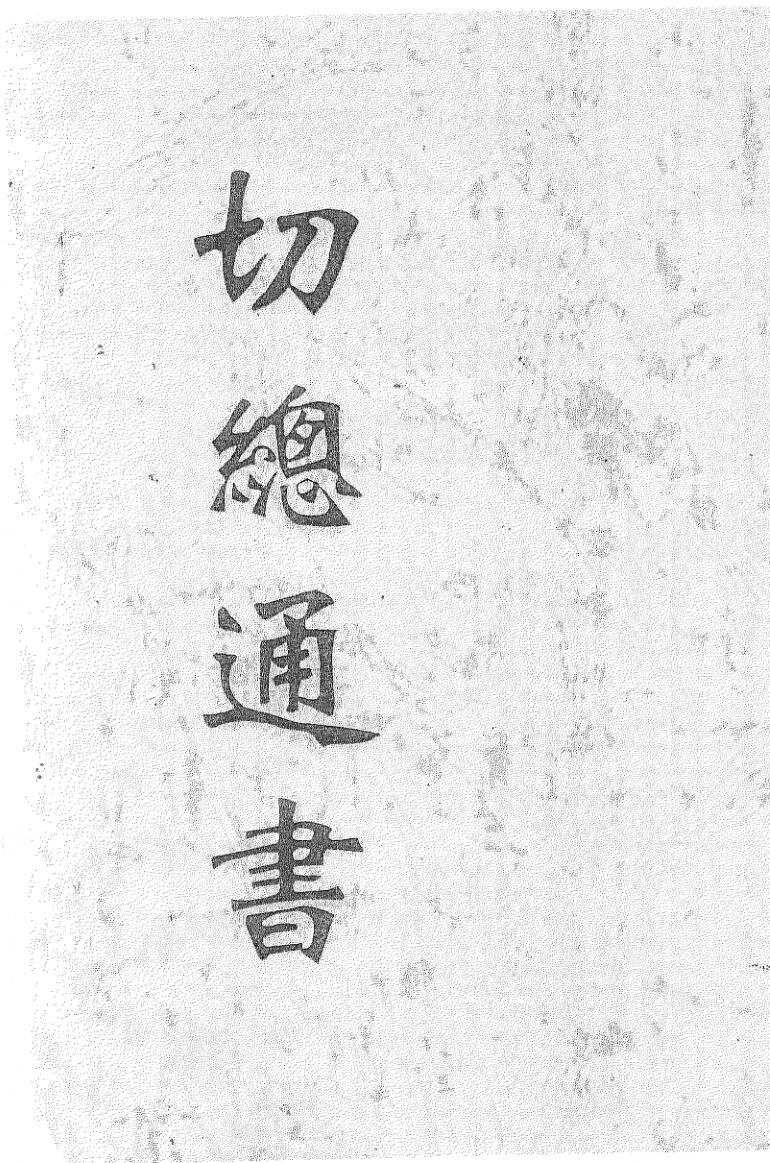 切總通書